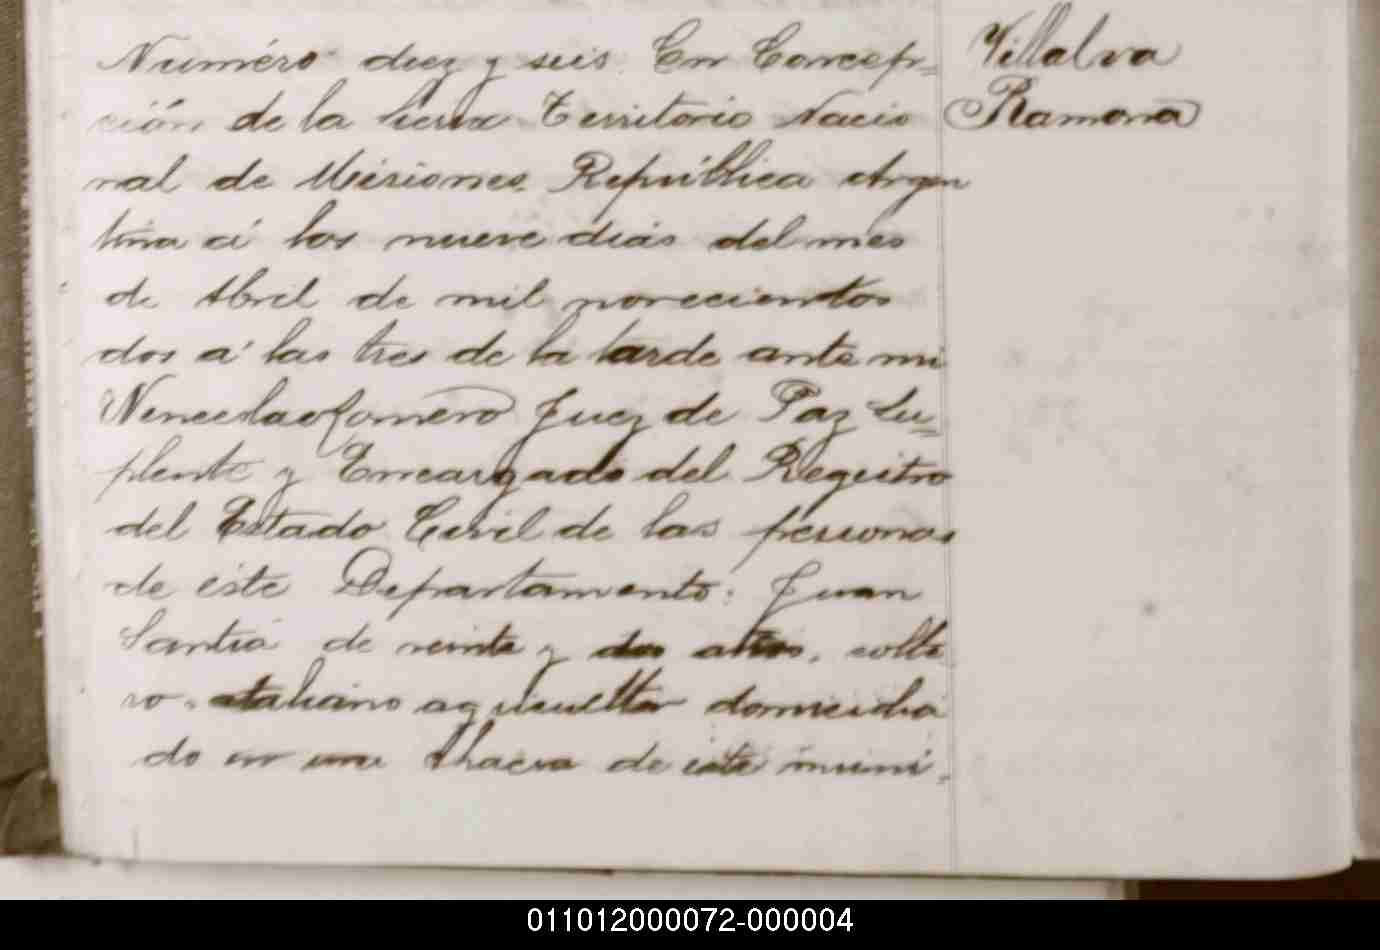 Número diez y seis. En Concep=
ción de la Sierra Territorio Nacio
nal de Misiones República Argen
tina á los nueve dias del mes
de Abril de mil novecientos
dos á las tres de la tarde ante mi
Wenceslao Romero Juez de Paz Su=
plente y Encargado del Registro
del Estado Civil de las personas
de este Departamento: Juan
de veinte y dos años, solte
ro, italiano domicilia
do en una Chacra de este muni.
Villalva
Ramona
011012000072-000004